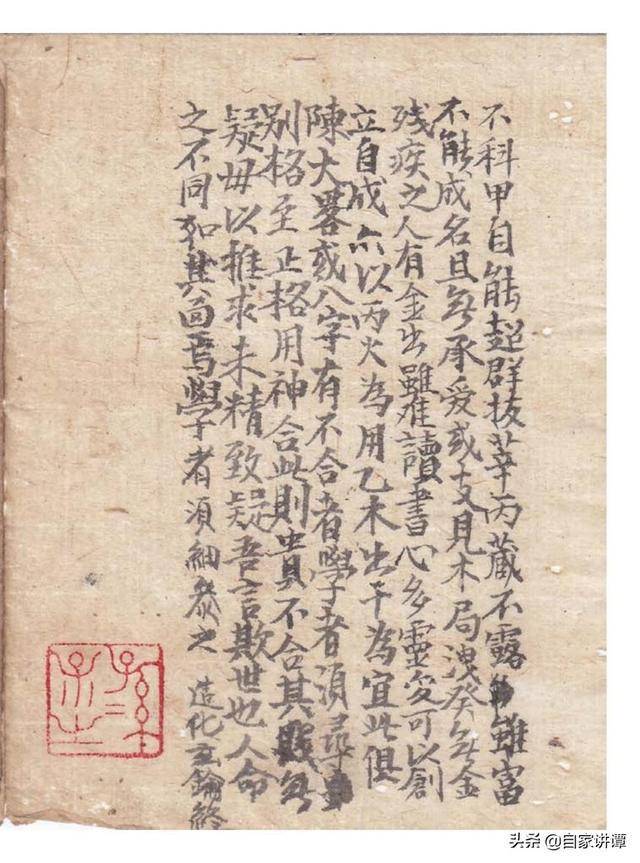 不科甲自能超群拔莘丙藏不露雖富
不能成名且無承受或支見木局洩癸無金
残疾之人有金出雖讀書心多靈変可以創
立自成亦以丙火為用乙木出干為宜此俱
陳大畧或八字有不合者學者須尋
别格至正格用神合此則貴不合其賤無
疑毋以推求未精致疑吾言欺世也人命
之不同如其面焉學者須細叅之 造化玄鑰終
头条 @自家讲谭